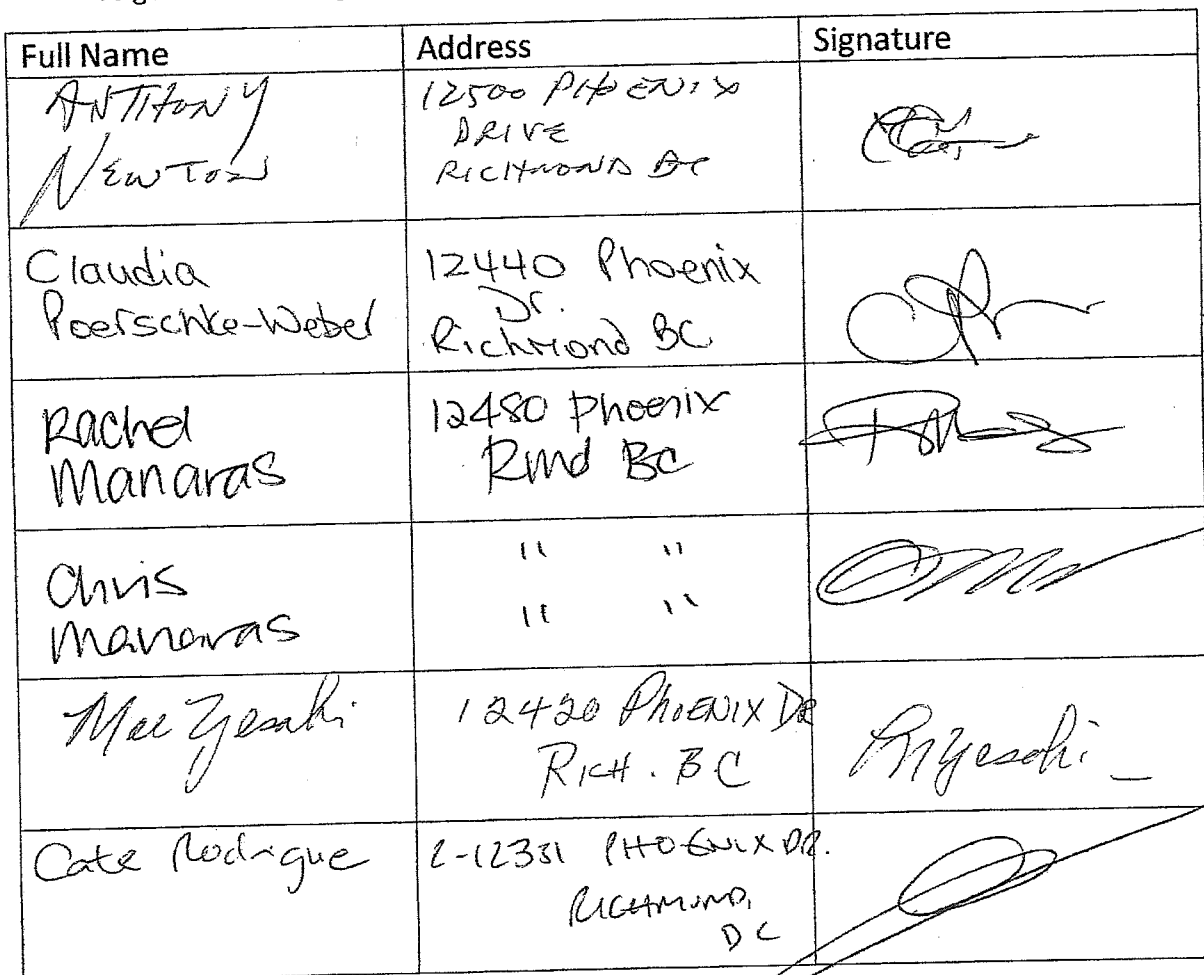 Full Name Address Signature
ANTHONY
NEWTON
12500 PHOENIX
DRIVE
RICHMOND BC
Claudia
Poerschke-Weber
12440 Phoenix
Dr.
Richmond BC
Rachel
Manaras
12480 Phoenix
Rmd BC
Chris
Manaras
" "
" "
Mae Yesaki
12420 PHOENIX DR
RICH. BC
MYesaki
Cate Rodrigue
2-12331 PHOENIX DR.
RICHMOND,
BC